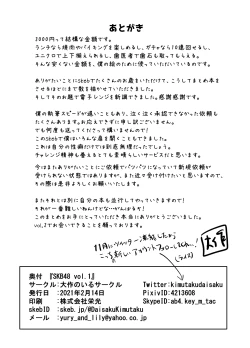 あとがき
3000円って結構な金額です。
ランチなら焼肉やバイキングを楽しめるし、ガチャなら10連回せるし、
ユニクロで上下揃えられるし、歯医者で歯石も取ってもらえる。
そんな安くない金額を、僕の絵のために使っていただいているのです。
ありがたいことにSkebでたくさんのお慕をいただけて、こうしてまとめ本を
させるほどにまで数を描かせていただきました。
そしてそのお題で電子レンジを新調できました。感謝感謝です。
僕の執筆スピードが遅いこともあり、泣く泣く承認できなかった依頼も
たくさんあります。お応えできずに申し訳ございません。
でも何度も送ってくださって構いませんので！
このSkebで僕はいろんな幕を描けました。
これは自分の性癖だけでは到底無理だったでしょう。
チャレンジ精神も入るとても素晴らしいサービスだと思います。
今はまたありがたいことにご依頼がパンパンになっていて新規依頼が
受けられない状態ではありますが、また近々受け付けたいと思いますので、
その際は是非よろしくお願いいたします。
またそれとは別に自分の本も進行してやっていきますので！
それが一番難しいねんけどな～がんばる！
このまとめをお手にとっていただき本当にありがとうございました。
vol.2でお会いできるのを願っております。
11月にツイッター凍結したから
ここ新しいアカウントフォローしてネ…！
大作
奥付 『SKB48 vol.1』
サークル：大作のいるサークル
Twitter:kimutakudaisaku
発行日 ：2021年2月14日
PixivID:4213608
印刷 ：株式会社栄光
SkypeID:ab4.key_m_tac
skebID ：skeb.jp/@DaisakuKimutaku
メール ：yury_and_lily@yahoo.co.jp